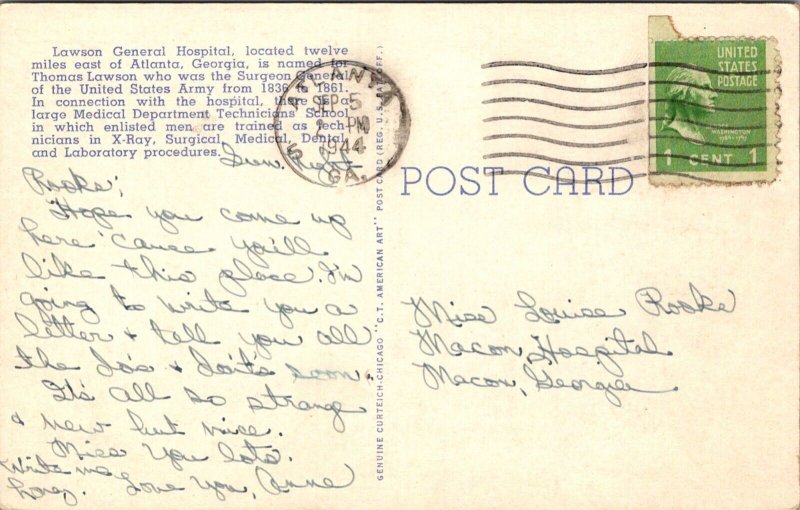 Lawson General Hospital, located twelve
miles east of Atlanta, Georgia, is named for
Thomas Lawson who was the Surgeon General
of the United States Army from 1836 to 1861.
In connection with the hospital, there is a
large Medical Department Technicians' School
in which enlisted men are trained as tech-
nicians in X-Ray, Surgical, Medical, Dental,
and Laboratory procedures.
Sun. Night
Rooke;
Hope you come up
here 'cause ya'll
like this place. I'm
going to write you a
letter & tell you all
the Do's & Don'ts soon.
It's all so strange
& new but nice.
Miss you lots.
Write me
Love you, Anne
GENUINE CURTEICH-CHICAGO "C.T. AMERICAN ART" POST CARD (REG. U.S. PAT. OFF.)
SEP 5
PM
1944
GA.
UNITED
STATES
POSTAGE
WASHINGTON
1 CENT 1
POST CARD
Miss Louise Rooke
Macon Hospital
Macon, Georgia.